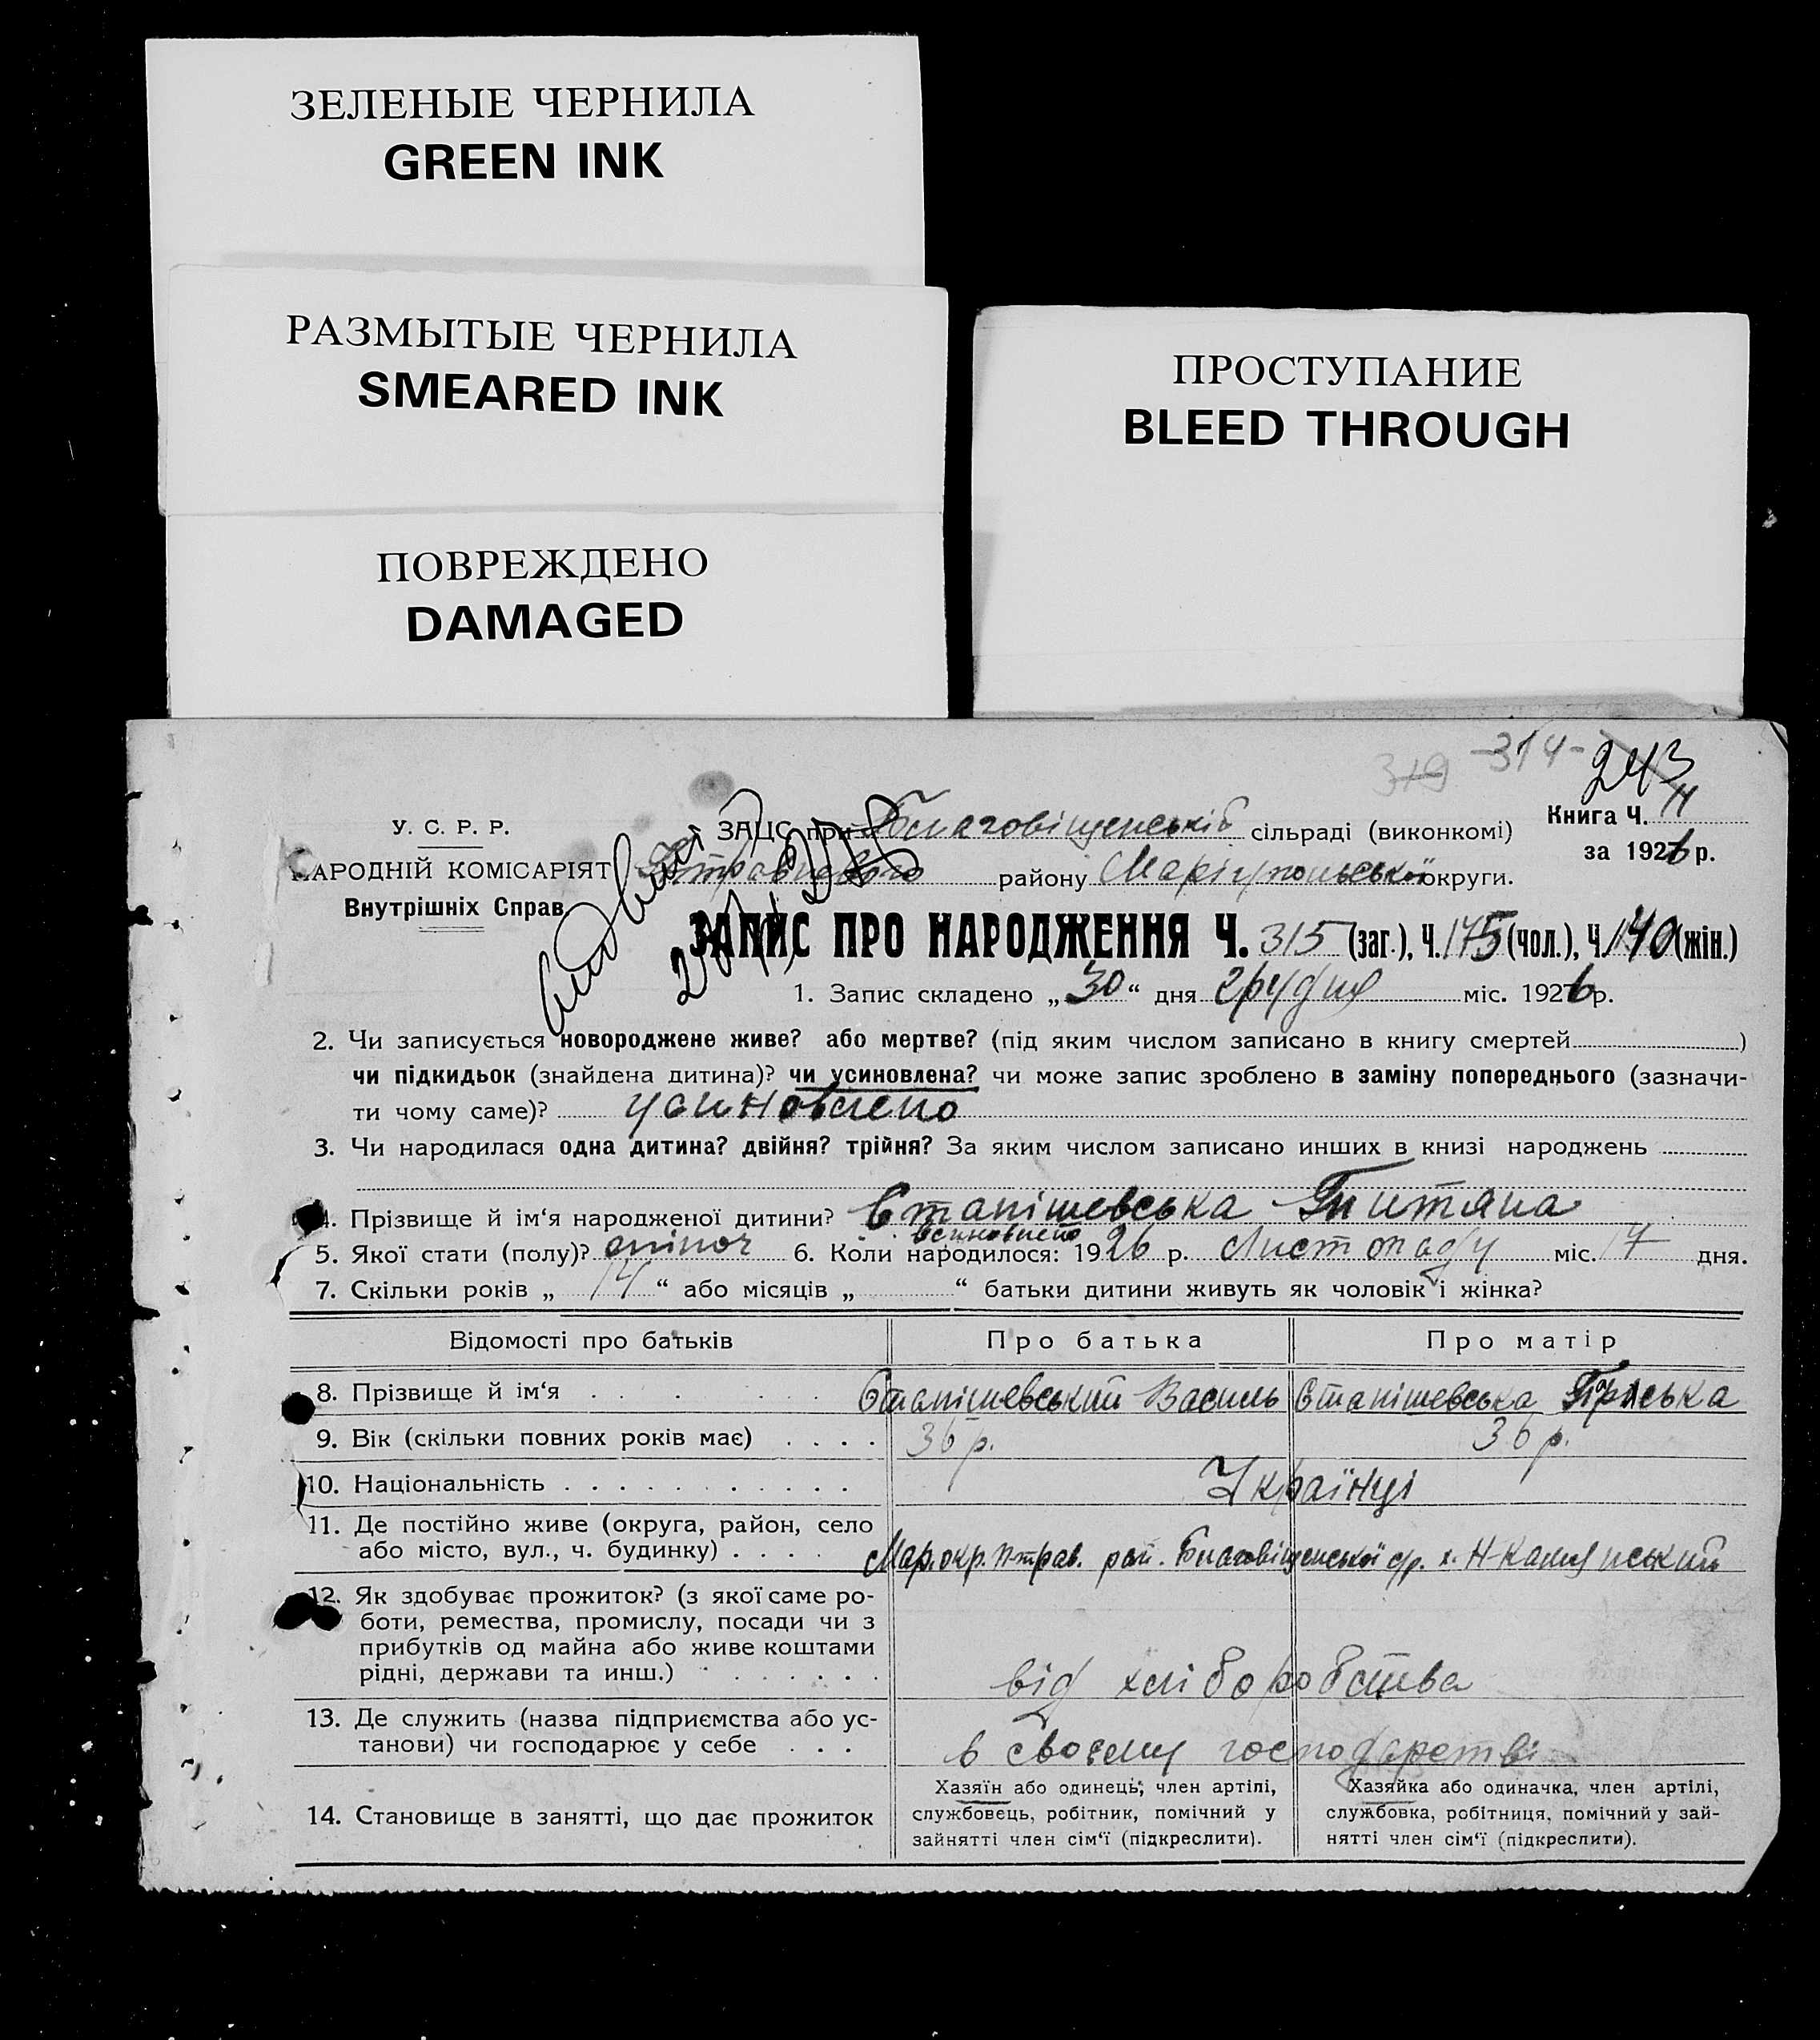 ЗЕЛЕНЫЕ ЧЕРНИЛА
GREEN INK
РАЗМЫТЫЕ ЧЕРНИЛА
SMEARED INK
ПОВРЕЖДЕНО
DAMAGED
ПРОСТУПАНИЕ
BLEED THROUGH
319 -314- 243
У. С. Р. Р.
НАРОДНІЙ КОМІСАРІЯТ
Внутрішніх Справ.
ЗАЦС при Благовіщенській сільраді (виконкомі)
районy Маріупольської округи.
Книга Ч. 11
за 1926 р.
ЗАПИС ПРО НАРОДЖЕННЯ Ч. 315 (заг.), Ч. 175 (чол.), Ч. 140 (жін.)
1. Запис складено „30“ дня грудня міс. 1926 р.
2. Чи записується новороджене живе? або мертве? (під яким числом записано в книгу смертей )
чи підкидьок (знайдена дитина)? чи усиновлена? чи може запис зроблено в заміну попереднього (зазначи-
ти чому саме)? усиновлено
3. Чи народилася одна дитина? двійня? трійня? За яким числом записано инших в книзі народжень
4. Прізвище й ім‘я народженої дитини? Станішевська Титяна
всиновлено
5. Якої стати (полу)? жіноч 6. Коли народилося: 1926 р. Листопаду міс. 17 дня.
7. Скільки років „ 14 “ або місяців „ “ батьки дитини живуть як чоловік і жінка?
Відомості про батьків Про батька Про матір
8. Прізвище й ім‘я Станішевський Василь Станішевська Пріська
9. Вік (скільки повних років має) 36 р. 36 р.
10. Національність Українці
11. Де постійно живе (округа, район, село
або місто, вул., ч. будинку) Мар. окр. П-трав. рай. Благовіщенської с/р. х.
12. Як здобуває прожиток? (з якої саме ро-
боти, ремества, промислу, посади чи з
прибутків од майна або живе коштами
рідні, держави та инш.) від хліборобства
13. Де служить (назва підприємства або ус-
танови) чи господарює у себе в своєму господарстві
14. Становище в занятті, що дає прожиток
Хазяїн або одинець, член артілі,
службовець, робітник, помічний у
зайнятті член сім‘ї (підкреслити).
Хазяйка або одиначка, член артілі,
службовка, робітниця, помічний у зай-
нятті член сім‘ї (підкреслити).